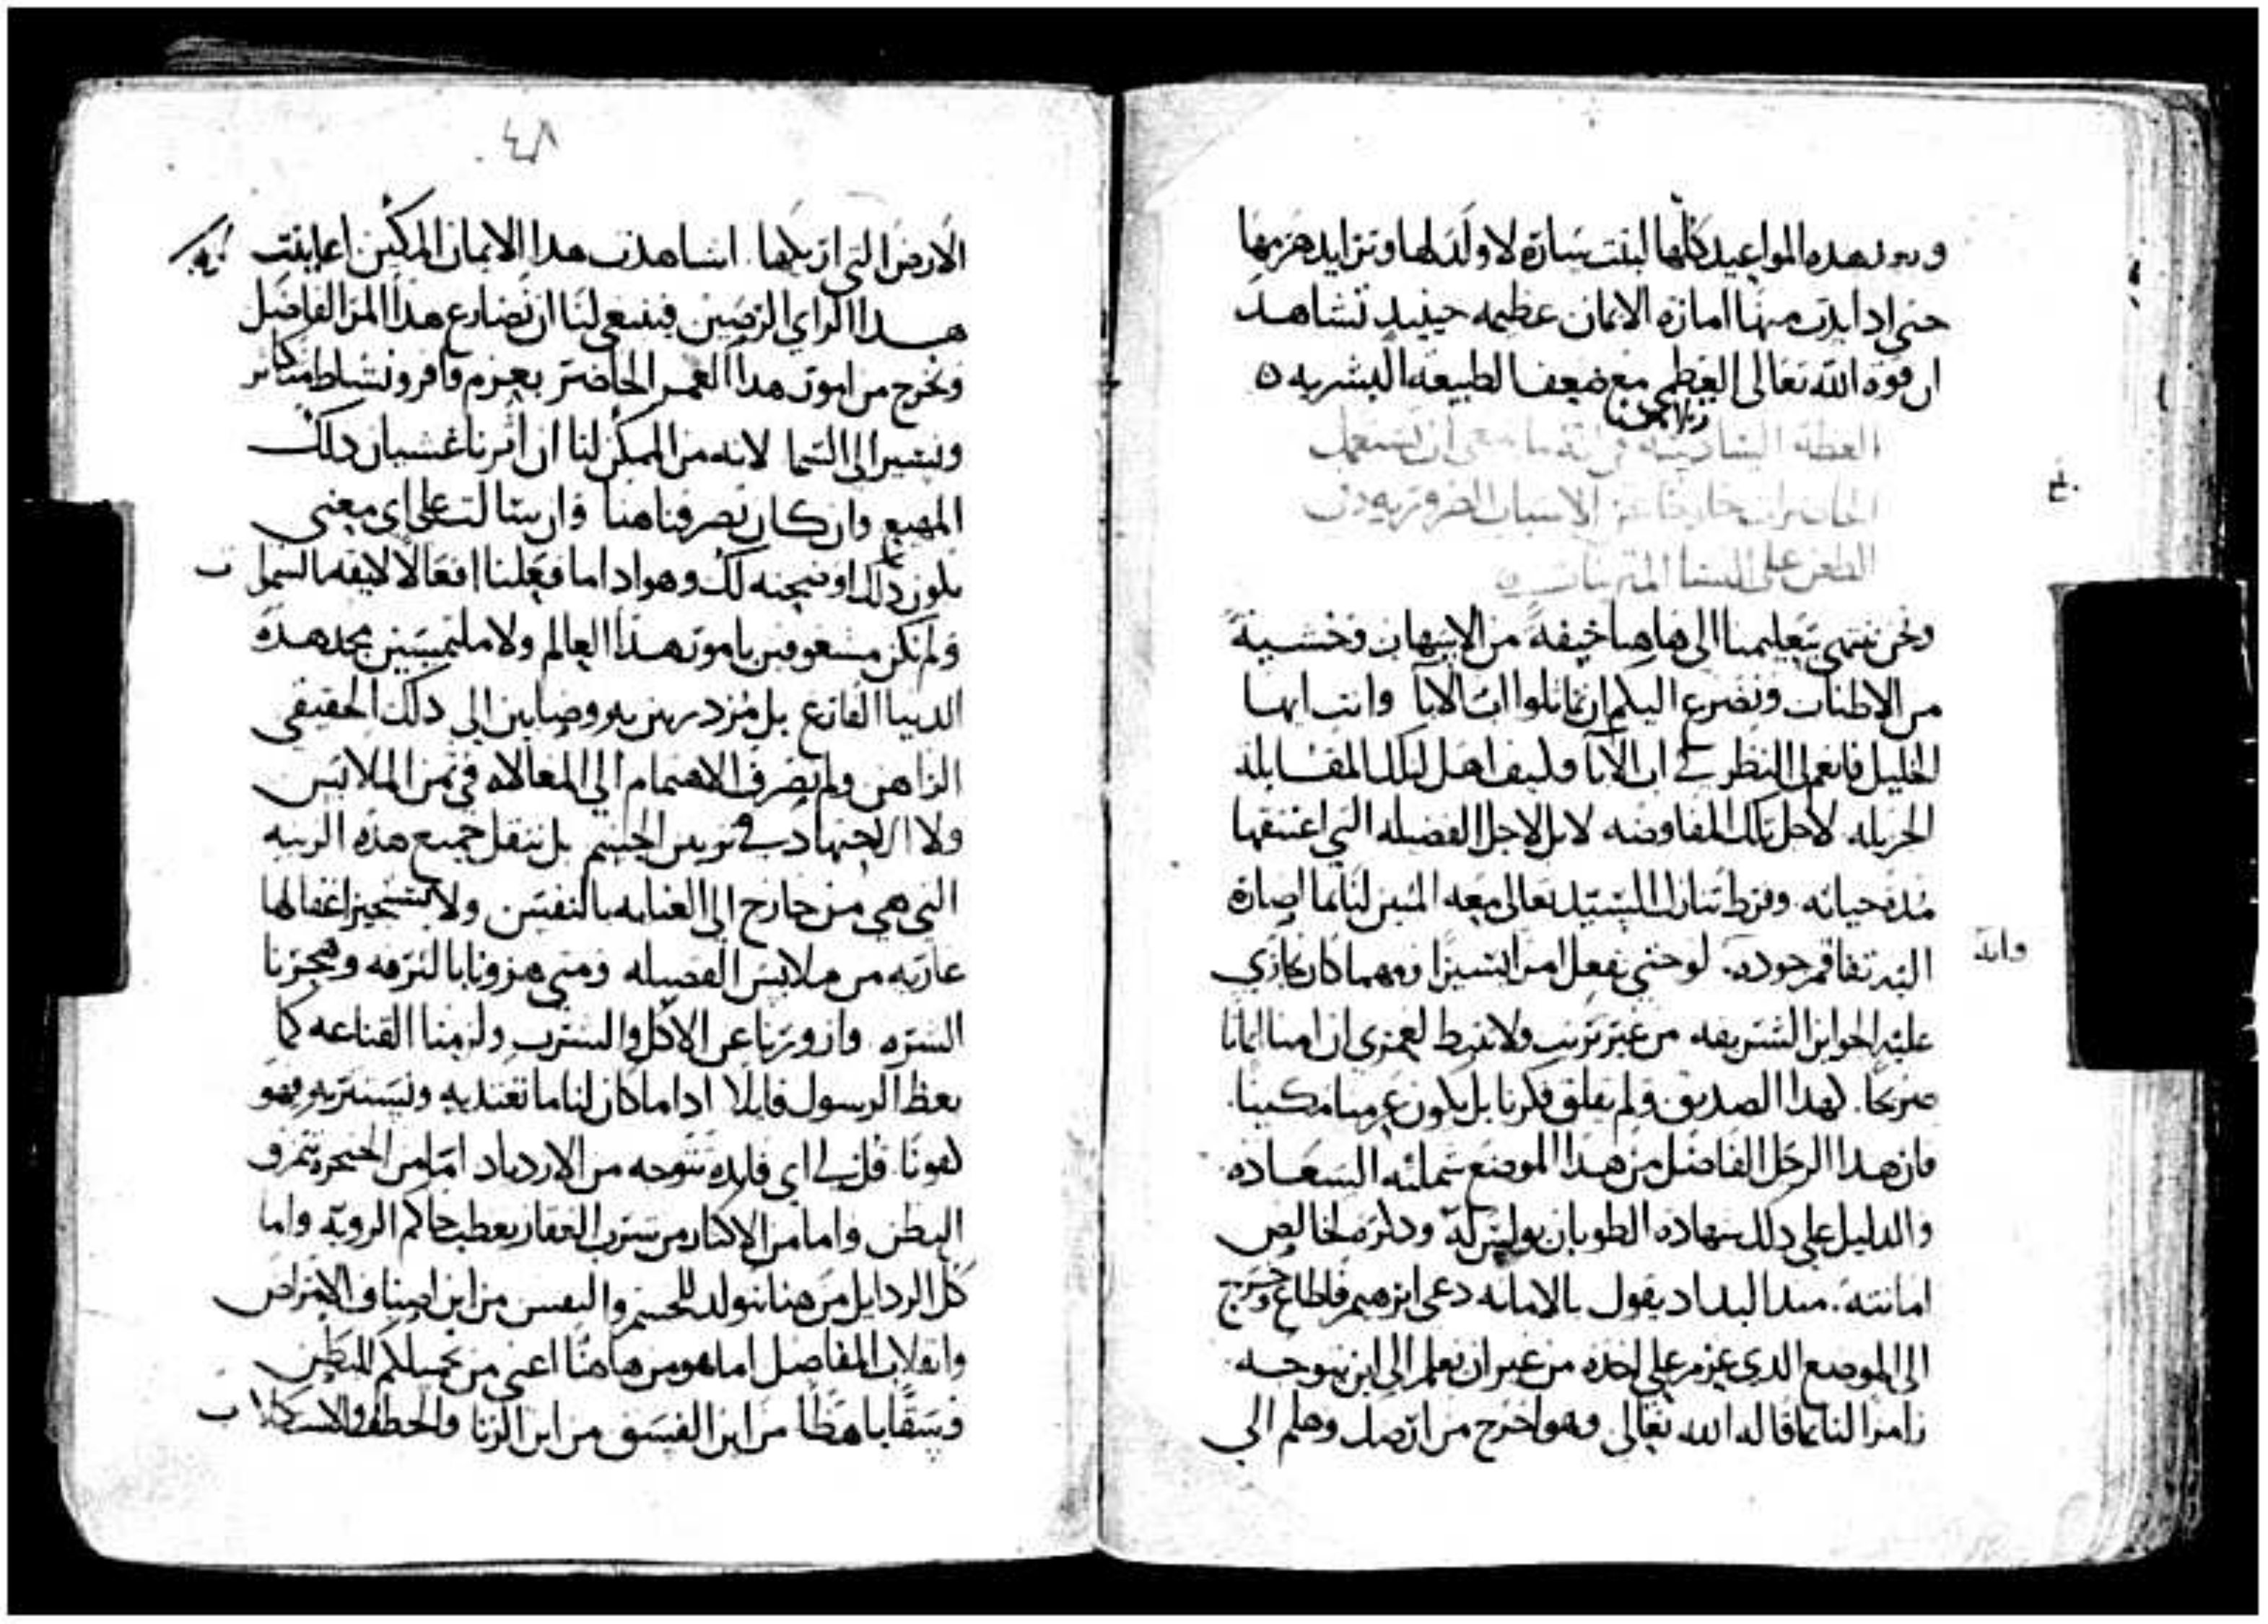 هذه المواعيد كلها لبثت ساره لا ولد لها وتزايد هرمها
حتى اذا منها اماره الايمان عظيمه حينيد تشاهد
ان قوه الله تعالى العظمى مع ضعف الطبيعه البشريه ه
العظه السادسه في
الحاضرات خارجا عن الاسباب الضروريه وفي
الطعن على النسا المتزينات ه
ونحن ننتهي بتعليمنا الى هاهنا خيفة من الاسهاب وخشية
من الاطناب ونضرع اليكم ان تماثلوا اب الابا وانت ايها
الخليل فانعم النظر في اب الابا وكيف اهل لتلك المقابله
الجزيله لاجل تلك المفاوضه لا بل لاجل الفضيله التي اعتنقها
مده حياته وفرط تنازل السيد تعالى معه المبين لنا بما اصاره
وانه
اليه تفاقم جوده لو حتى نفعل امرا يسيرا ومهما كان يجازي
عليه الجوايز الشريفه من غير تريب ولا تفريط لعمري ان امنا ايمانا
صريحا كهذا الصديق ولم يقلق فكرنا بل يكون عزمنا مكينا
فان هذا الرجل الفاضل من هذا الموضع شملته السعاده
والدليل على ذلك شهاده الطوبان بولس له وذكره لخالص
امانته منذ البدا اذ يقول بالامانه دعي ابرهيم فاطاع وخرج
الى الموضع الذي عزم على اخذه من غير ان يعلم الى اين يتوجه
رامزا لنا بما قاله الله تعالى وهو اخرج من ارضك وهلم الى
٤٨
الارض التي اريكها اشاهدت هذا الايمان المكين اعاينت
هذا الراي الرصين فينبغي لنا ان نضارع هذا المر الفاضل
ونخرج من امور هذا العمر الحاضر بعزم وافر ونشاط متكاثر
ونسير الى السما لانه من الممكن لنا ان اثرنا غشيان ذلك
المهيع وان كان تصرفنا هنا وان سالت على اي معنى
يكون ذلك اوضحته لك وهو اذا ما فعلنا افعالا لايقه بالسما
ولم نكن مشغوفين بامور هذا العالم ولا ملتمسين مجد هذه
الدنيا الفارغ بل مزدرين به وصابين الى ذلك الحقيقي
الراهن ولم نصرف الاهتمام الى المغالاه في ثمن الملابس
ولا الاجتهاد في تزيين الجسم بل ننقل جميع هذه الزينه
التي هي من خارج الى العنايه بالنفس ولا نستجيز اغفالها
عاريه من ملابس الفضيله ومتى هزونا بالترفه وهجرنا
الشره وازورنا عن الاكل والشرب ولزمنا القناعه كما
يعظ الرسول قايلا اذا ما كان لنا ما نغتذيه ونستتر به فهو
كفونا قل لي اي فايده تتوجه من الازدياد اما من الحنجره تمزق
البطن واما من الاكثار من شرب العقار يعطب حاكم الرويه واما
كل الردايل من هنا تتولد للجسم والنفس من اين اصناف الامراض
وانفلات المفاصل اما هو من هاهنا اعني من تحميلكم للبطن
وسقا باهظا من اين الفسق من اين الزنا والخطف والاستكلاب